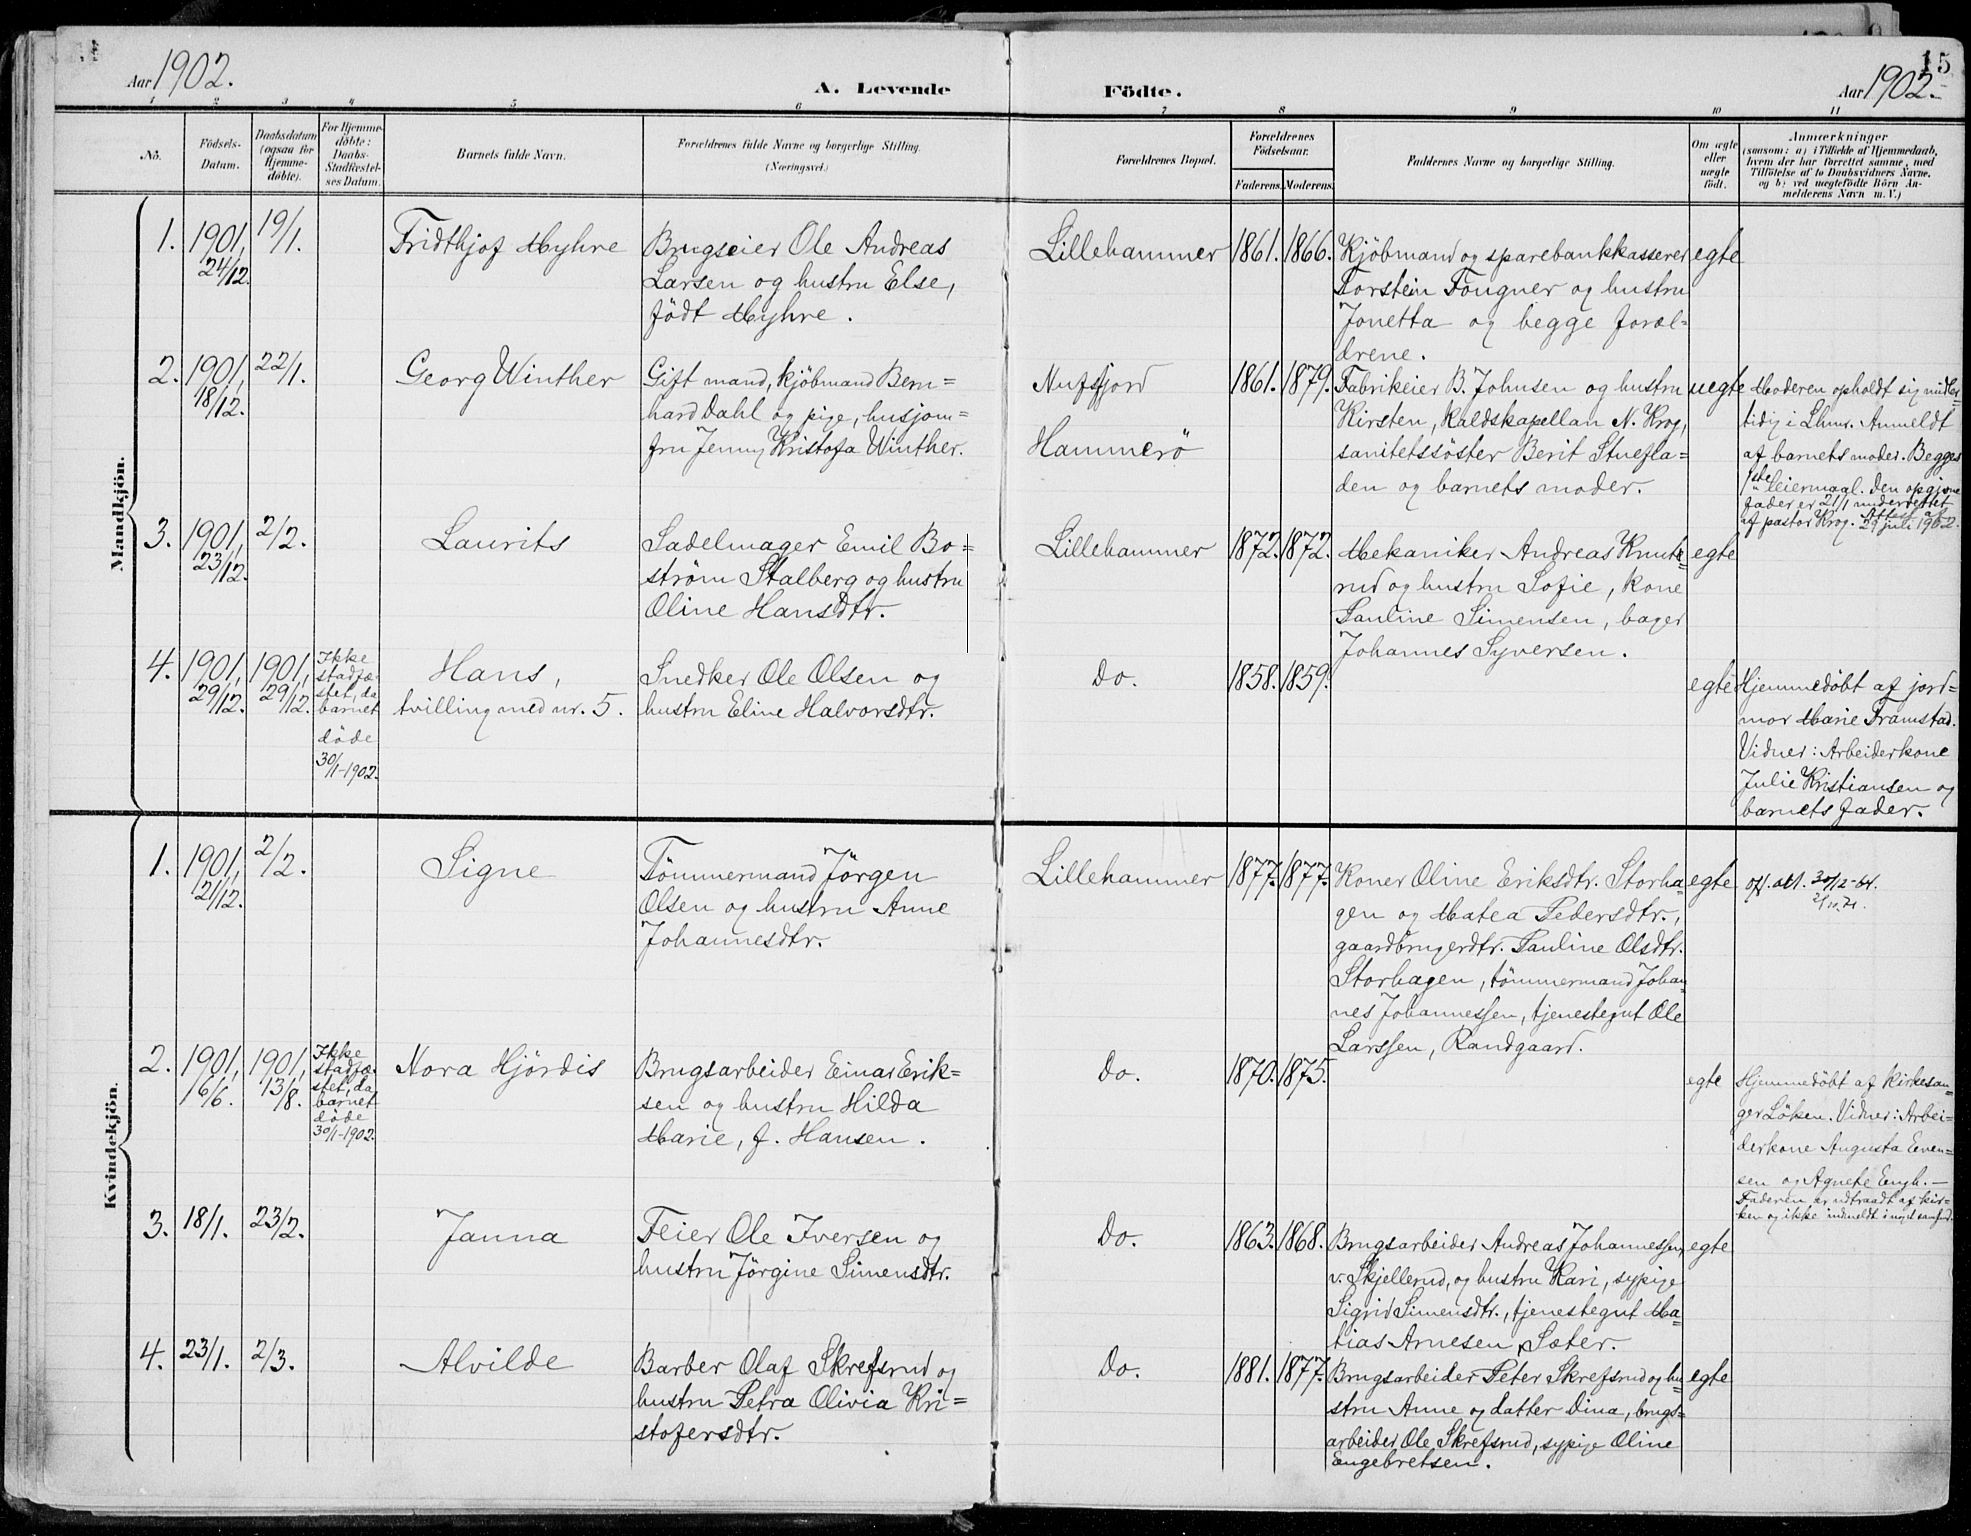 15
Aar 1902.
A. Levende
Födte.
Aar 1902.
1 2 3 4 5 6 7 8 9 10 11
No.
Födsels-
Datum.
Daabsdatum
(ogsaa for
Hjemme-
döbte).
For Hjemme-
döbte:
Daabs-
Stadfæstel-
ses Datum.
Barnets fulde Navn.
Forældrenes fulde Navne og borgerlige Stilling.
(Næringsvei.)
Forældrenes Bopæl.
Forældrenes
Födselsaar.
Faderens.
Moderens.
Faddernes Navne og borgerlige Stilling.
Om ægte
eller
uægte
födt.
Anmærkninger
(saasom: a) i Tilfælde af Hjemmedaab,
hvem der har forrettet samme, med
Tilföielse af to Daabsvidners Navne.
og b) ved uægtefödte Börn An-
melderens Navn m. V.)
Mandkjön.
1.
1901,
24/12.
19/1.
Fridthjof Myhre
Brugseier Ole Andreas
Larsen og hustru Else,
födt Myhre.
Lillehammer
1861.
1866.
Kjöbmand og sparebankkasserer
Torstein Fougner og hustru
Jonetta og begge foræl=
drene.
egte
2.
1901,
18/12.
22/1.
Georg Winther
Gift mand, kjöbmand Bern=
hard Dahl og pige, husjom=
fru Jenny Kristofa Winther.
Nufsfjord
Hammerö
1861.
1879.
Fabrikeier B. Johnsen og hustru
Kirsten, kaldskapellan N. Krog,
sanitetssöster Berit Stuefla=
den og barnets moder.
uegte
Moderen opholdt sig midler=
tidig i Lhmr. Anmeldt
af barnets moder. Begges
1ste leiermaal. Den opgivne
fader er 21/1 underrettet
af pastor Krog. Attest af
29 juli 1902.
3.
1901,
23/12.
2/2.
Laurits
Sadelmager Emil Bo=
ström Stalberg og hustru
Oline Hansdtr.
Lillehammer
1872.
1872.
Mekaniker Andreas Knuts=
rud og hustru Sofie, kone
Pauline Simensen, bager
Johannes Syversen.
egte
4.
1901,
29/12.
1901,
29/12.
Ikke
stadfæ=
stet, da
barnet
döde
30/1-1902.
Hans,
tvilling med nr. 5.
Snedker Ole Olsen og
hustru Eline Halvorsdtr.
Do.
1858.
1859.
egte
Hjemmedöbt af jord=
mor Marie Framstad.
Vidner: Arbeiderkone
Julie Kristiansen og
barnets fader.
Kvindekjön.
1.
1901,
2/12.
2/2.
Signe
Tömmermand Jörgen
Olsen og hustru Anne
Johannesdtr.
Lillehammer
1877.
1877.
Koner Oline Eriksdtr. Storha=
gen og Matea Pedersdtr.,
gaardbrugerdtr. Pauline Olsdtr.
Storhagen, tömmermand Johan=
nes Johannessen, tjenestegut Ole
Larssen, Randgaard.
egte
off. att. 30/12-64.
2.
1901,
16/6.
1901,
13/8.
Ikke
stadfæ=
stet, da
barnet
döde
30/1-1902.
Nora Hjördis
Brugsarbeider Einar Erik=
sen og hustru Hilda
Marie, f. Hansen.
Do.
1870.
1875.
egte
Hjemmedöbt af kirkesan=
ger Löken. Vidner: Arbei=
derkone Augusta Even=
sen og Agnete Engh. —
Faderen er udtraadt af kir=
ken og ikke indmeldt i noget samfund.
3.
18/1.
23/2.
Janna
Feier Ole Iversen og
hustru Jörgine Simensdtr.
Do.
1863.
1868.
Brugsarbeider Andreas Johannessen,
v. Skjellerud, og hustru Kari, sypige
Sigrid Simensdtr., tjenestegut Ma=
tias Arnesen, Sæter.
egte
4.
23/1.
2/3.
Alvilde
Barber Olaf Skrefsrud og
hustru Petra Olivia Kri=
stofersdtr.
Do.
1881.
1877.
Brugsarbeider Peter Skrefsrud og hu=
stru Anne og datter Dina, brugs=
arbeider Ole Skrefsrud, sypige Oline
Engebretsen.
egte